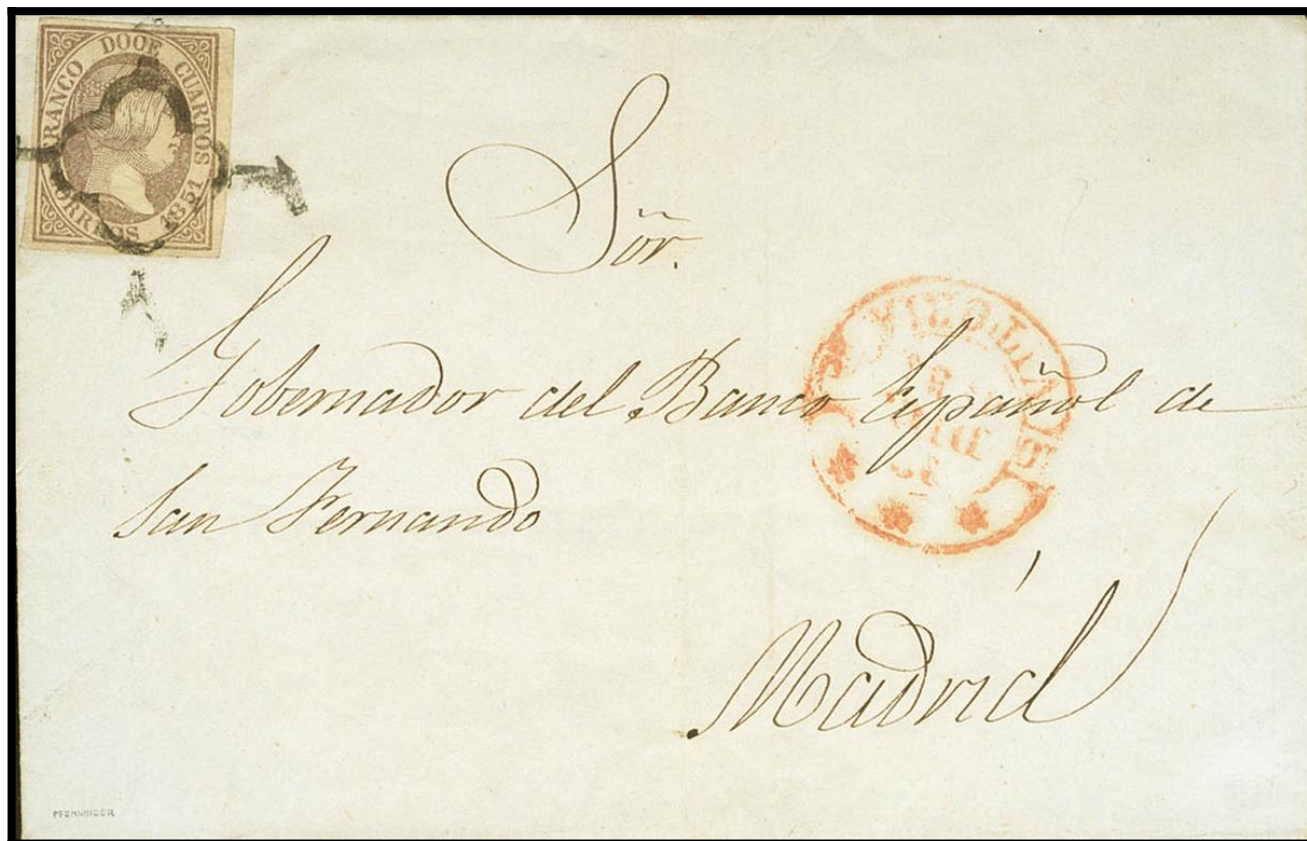 FRANCO DOCE CUARTOS
CORREOS 1851
Sōr.
Gobernador del Banco Español de
San Fernando
Madrid
PFENNINGER